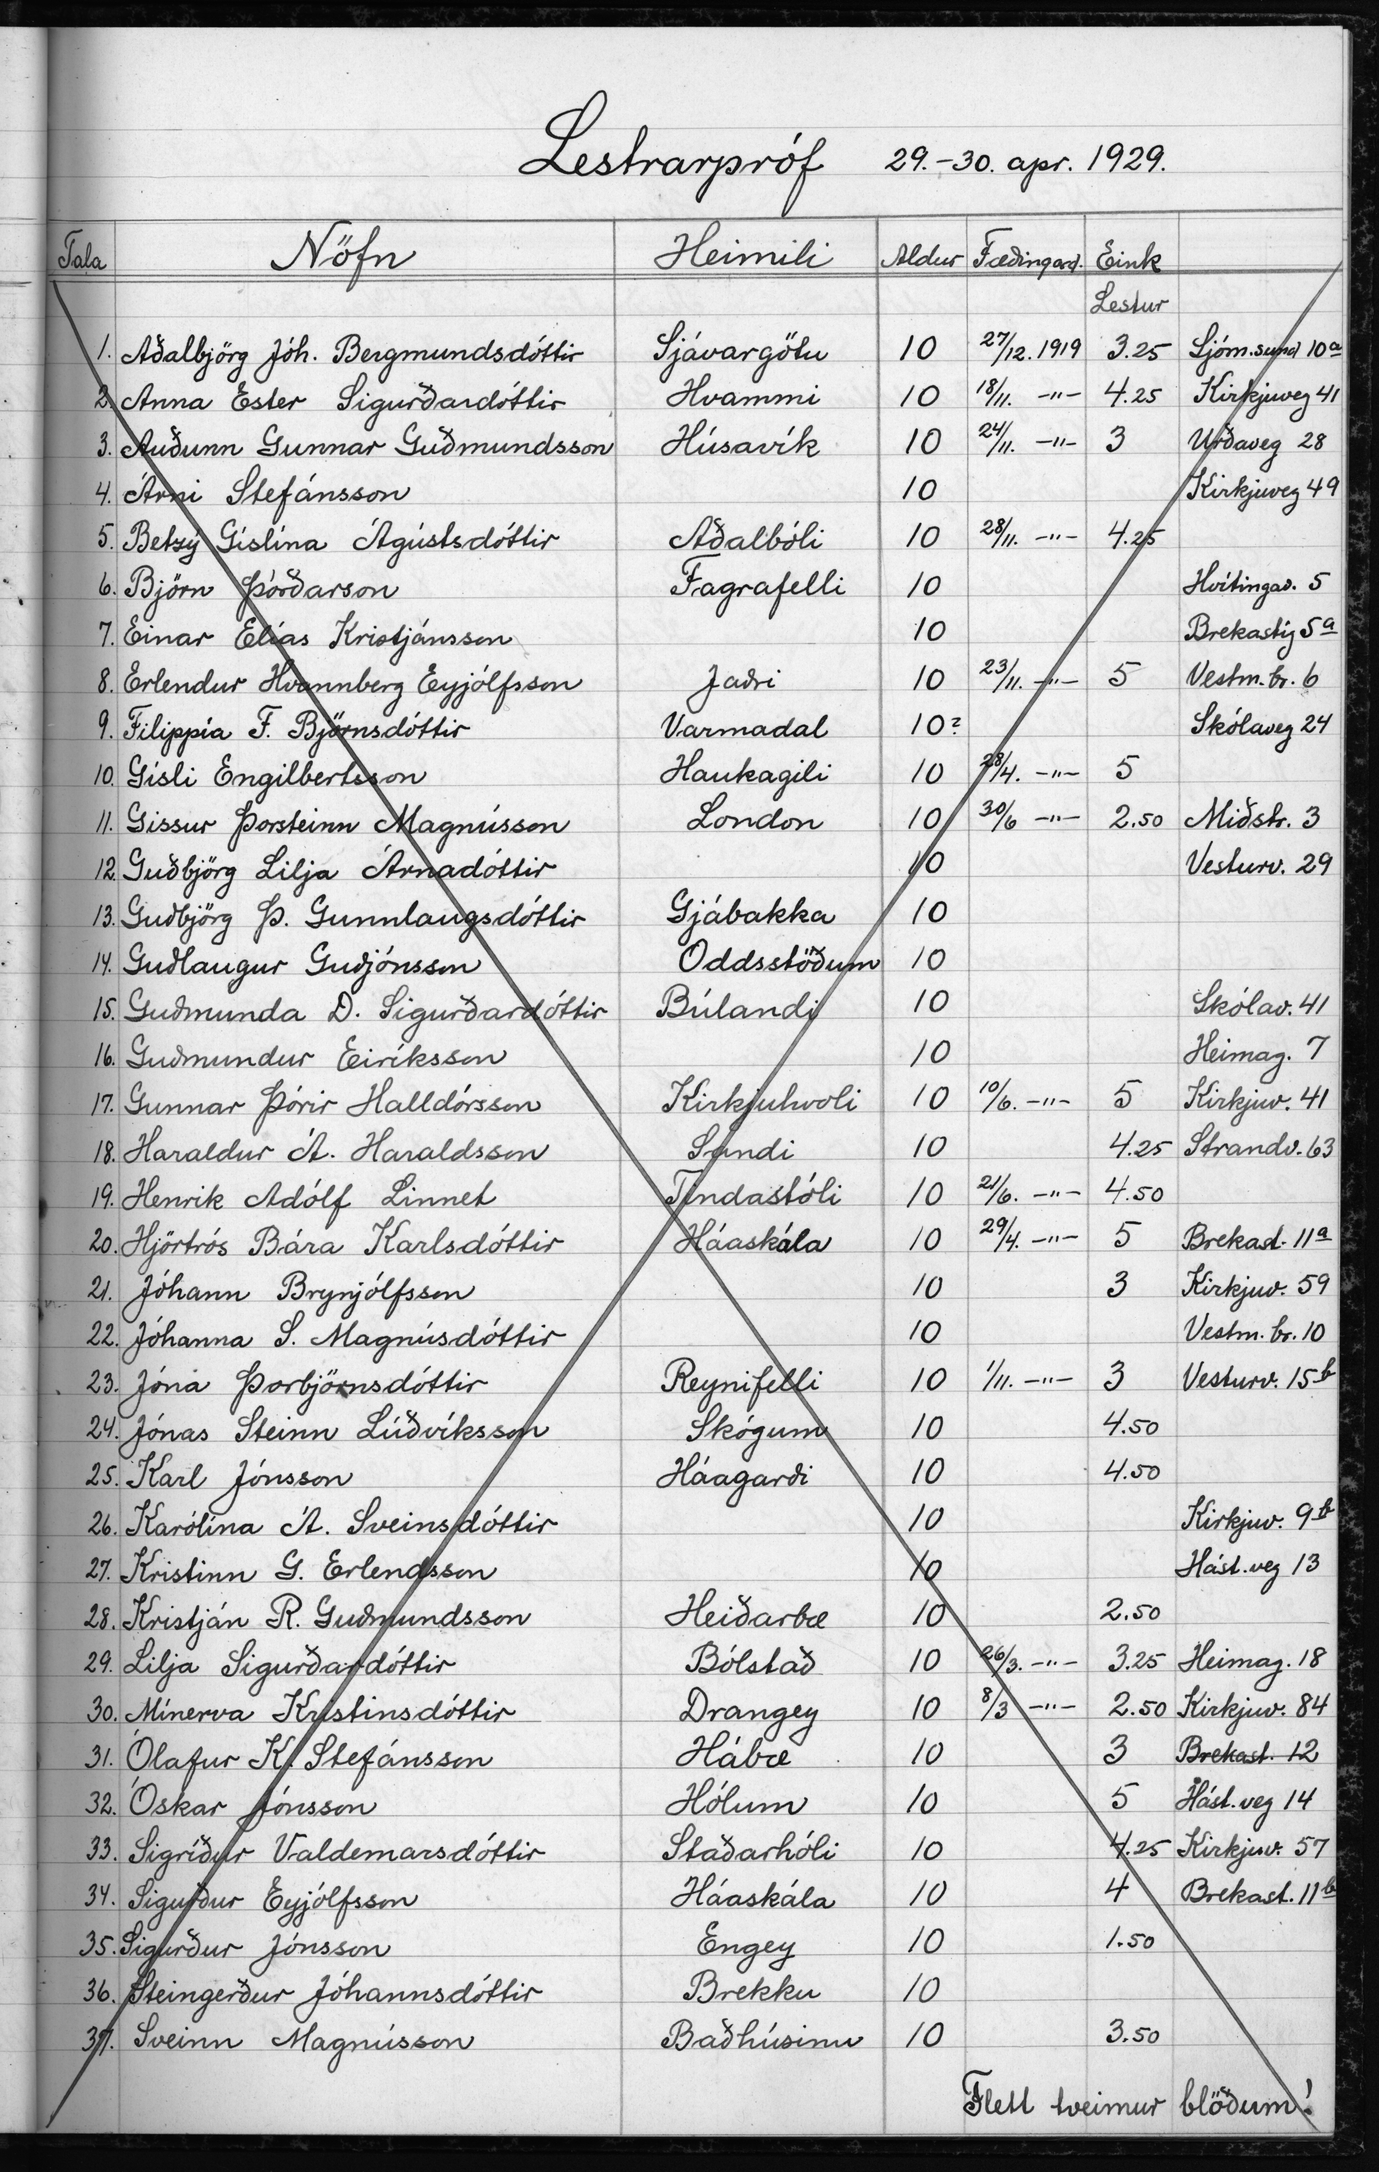 Lestrarpróf 29.-30. apr. 1929.
Tala Nöfn Heimili Aldur Fæðingard. Eink
Lestur
1. Aðalbjörg Jóh. Bergmundsdóttir Sjávargötu 10 27/12. 1919 3.25 Sjóm.sund 10a
2. Anna Ester Sigurðardóttir Hvammi 10 18/11. -"- 4.25 Kirkjuveg 41
3. Auðunn Gunnar Guðmundsson Húsavík 10 24/11. -"- 3 Urðaveg 28
4. Árni Stefánsson 10 Kirkjuveg 49
5. Betzý Gíslína Ágústsdóttir Aðalbóli 10 28/11. -"- 4.25
6. Björn Þórðarson Fagrafelli 10 Hvítingav. 5
7. Einar Elías Kristjánsson 10 Brekastíg 5a
8. Erlendur Hvannberg Eyjólfsson Jaðri 10 23/11. -"- 5 Vestm.br. 6
9. Filippía F. Björnsdóttir Varmadal 10? Skólaveg 24
10. Gísli Engilbertsson Haukagili 10 28/4. -"- 5
11. Gissur Þorsteinn Magnússon London 10 30/6 -"- 2.50 Miðstr. 3
12. Guðbjörg Lilja Árnadóttir 10 Vesturv. 29
13. Guðbjörg Þ. Gunnlaugsdóttir Gjábakka 10
14. Guðlaugur Guðjónsson Oddsstöðum 10
15. Guðmunda D. Sigurðardóttir Búlandi 10 Skólav. 41
16. Guðmundur Eiríksson 10 Heimag. 7
17. Gunnar Þórir Halldórsson Kirkjuhvoli 10 10/6. -"- 5 Kirkjuv. 41
18. Haraldur Á. Haraldsson Sandi 10 4.25 Strandv. 63
19. Henrik Adólf Linnet Tindastóli 10 21/6. -"- 4.50
20. Hjörtrós Bára Karlsdóttir Háaskála 10 29/4. -"- 5 Brekast. 11a
21. Jóhann Brynjólfsson 10 3 Kirkjuv. 59
22. Jóhanna S. Magnúsdóttir 10 Vestm. br. 10
23. Jóna Þorbjörnsdóttir Reynifelli 10 1/11. -"- 3 Vesturv. 15b
24. Jónas Steinn Lúðvíksson Skógum 10 4.50
25. Karl Jónsson Háagarði 10 4.50
26. Karólína Á. Sveinsdóttir 10 Kirkjuv. 9b
27. Kristinn G. Erlendsson 10 Hást.veg 13
28. Kristján R. Guðmundsson Heiðarbæ 10 2.50
29. Lilja Sigurðardóttir Bólstað 10 26/3. -"- 3.25 Heimag. 18
30. Mínerva Kristinsdóttir Drangey 10 8/3 -"- 2.50 Kirkjuv. 84
31. Ólafur K. Stefánsson Hábæ 10 3 Brekast. 12
32. Óskar Jónsson Hólum 10 5 Hást.veg 14
33. Sigríður Valdemarsdóttir Staðarhóli 10 4.25 Kirkjuv. 57
34. Sigurður Eyjólfsson Háaskála 10 4 Brekast. 11b
35. Sigurður Jónsson Engey 10 1.50
36. Steingerður Jóhannsdóttir Brekku 10
37. Sveinn Magnússon Baðhúsinu 10 3.50
Flett tveimur blöðum!